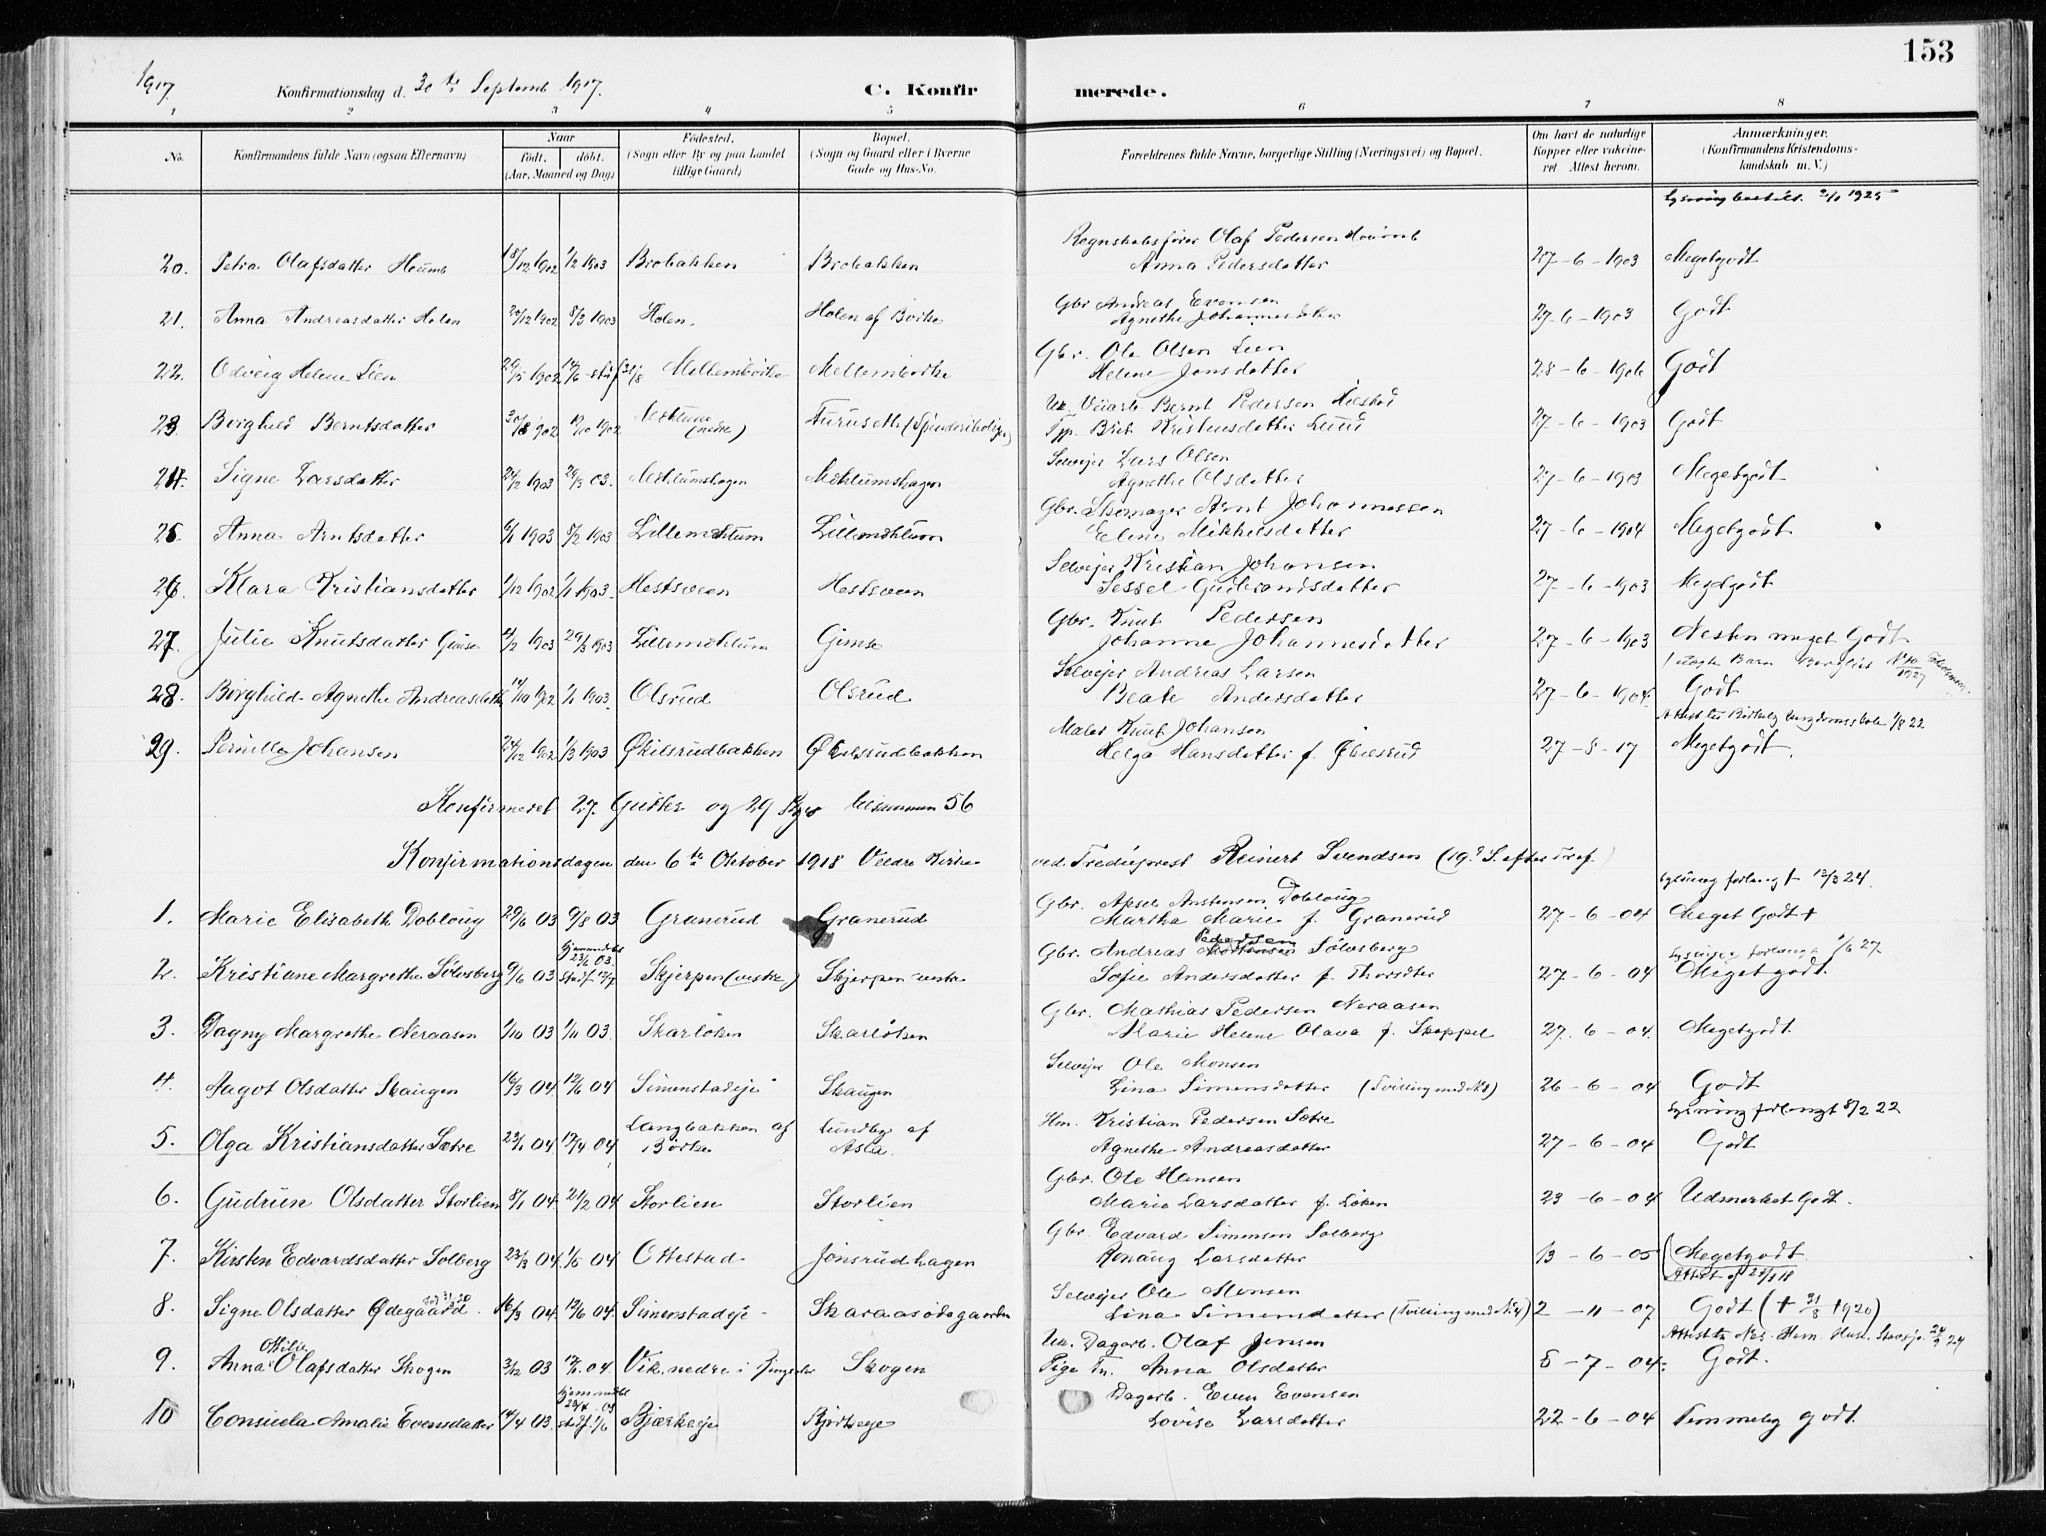 153
1917
Konfirmationsdag d. 30te Septemb 1917.
C. Konfirmerede.
1 2 3 4 5 6 7 8
No. Konfirmandens fulde Navn (ogsaa Efternavn) Naar født, døbt. (Aar, Maaned og Dag) Fødested. (Sogn eller By og paa Landet tillige Gaard) Bopæl. (Sogn og Gaard eller i Byerne Gade og Hus-No. Forældrenes fulde Navne, borgerlige Stilling (Næringsvei) og Bopæl. Om havt de naturlige Kopper eller vakcineret Attest herom. Anmærkninger. (Konfirmandens Kristendomskundskab m. V.)
20. Petra Olafsdatter Houmb 18/12 1902 1/2 1903 Brobakken Brobakken Regnskabsfører Olaf Pedersen Houmb
Anna Pedersdatter 27-6-1903 Megetgodt
21. Anna Andreasdatter Holen 20/12 1902 8/3 1903 Holen. Holen af Børke Gbr Andreas Evensen
Agnethe Johannesdatter 27-6-1903 Godt
22. Odveig Helene Lien Mellembørke Mellembørke Gbr. Ole Olsen Lien
Helene Jonsdatter 28-6-1906 Godt
23. Borghild Berntsdatter Furuseth Bernt Pedersen
Kristensdatter Lund 27-6-1903 Godt
24. Signe Larsdatter 24/2 1903 29/3 03. Mehlumshagen Mehlumshagen Selveier Lars Olsen
Agnethe Olsdatter 27-6-1903 Megetgodt
25. Anna Arntsdatter 6/1 1903 8/2 1903 Lillemehlum Lillemehlum Gbr. Skomager Arnt Johannessen
Elene Mikkelsdatter 27-6-1904 Megetgodt
26. Klara Kristiansdatter 1/12 1902 1/1 1903. Hestsveen Hestsveen Selveier Kristian Johansen
Sessel Gudbrandsdatter 27-6-1903 Megetgodt
27. Julie Knutsdatter Gimse 29/3 1903 Lillemehlum Gimse Gbr. Knut Pedersen
Johanne Johannesdatter 27-6-1903 Nesten meget Godt
28. Borghild Agnethe Andreasdatter 1/1 1903. Olsrud Olsrud Selveier Andreas Larsen
Beate Andersdatter 27-6-1904. Godt
29. Pernille Johansen 1/3 1903 Økilsrudbakken Økilsrudbakken Maler Knut Johansen
Helga Hansdatter f. Økilsrud 27-8-17 Megetgodt.
Konfirmeret 27. Gutter og 29 Piger tilsammen 56
Konfirmationsdagen den 6te Oktober 1918 Veldre Kirke ved Tredieprest Reinert Svendsen (19. S. efter Tref.)
Lysning forlangt 12/3 24.
1. Marie Elisabeth Dobloug 29/6 03 9/8 03 Granerud Granerud Gbr. Axsel Anstensen Dobloug
Martha Marie f. Granerud 27-6-04 Meget Godt +
2. Kristiane Margrethe Sølvsberg 9/6 03 Hjemmedøbt 23/6 03. Stadf. 12/7 Skjerpen (vestre) Skjerpen vestre Gbr. Andreas Pedersen Sølvsberg
Sofie Andersdatter 27-6-04 Megetgodt.
3. Dagny Margrethe Neraasen 1/10 03 1/11 03. Skarløken Skarløken Gbr. Mathias Pedersen Neraasen
Marie Helene Olava f. Skappel 27.-6-04. Megetgodt.
4. Aagot Olsdatter Skaugen 16/3 04 12/6 04 Simenstadeje Skaugen Selveier Ole Monsen
Lina Simensdatter (Tvilling med N8) 26-6-04 Godt
Lysning forlangt 8/2 22
5. Olga Kristiansdatter Sætre 23/1 04 17/4 04 Langbakken af Børke Lundby af Asla. Hm. Kristian Pedersen Sætre
Agnethe Andreasdatter 27-6-04 Godt
6. Gudrun Olsdatter Storlien 8/1 04 21/2 04 Storlien Storlien Gbr. Ole Hansen
Marie Larsdatter f. Løken 23-6-04 Udmerket Godt.
7. Kirsten Edvardsdatter Solberg 23/3 04 1/5 04 Ottestad Jønsrudhagen Gbr. Edvard Simensen Solberg
Rønaug Larsdatter 13-6-05 Megetgodt.
8. Signe Olsdatter Ødegaard 16/3 04 12/6 04. Simenstadeje Skaraasødegaarden Selveier Ole Monsen
Lina Simensdatter (Tvilling med N4) 2-11-07 Godt († 31/8 1920)
9. Anna Otilie Olafsdatter Skogen 3/12 03 Vik, nedre i Ringsaker Skogen Uk. Dagarb. Olaf Jensen
Pige Tn. Anna Olsdatter 5-7-04. Godt.
10 Consuela Amalie Evensdatter 14/4 03. Hjemmedøbt 23/4 03 stadf. 1/6 Bjærkeeje Bjørkeeje Dagarb. Even Evensen
Lovise Larsdatter 22-6-04 Temmelig godt.